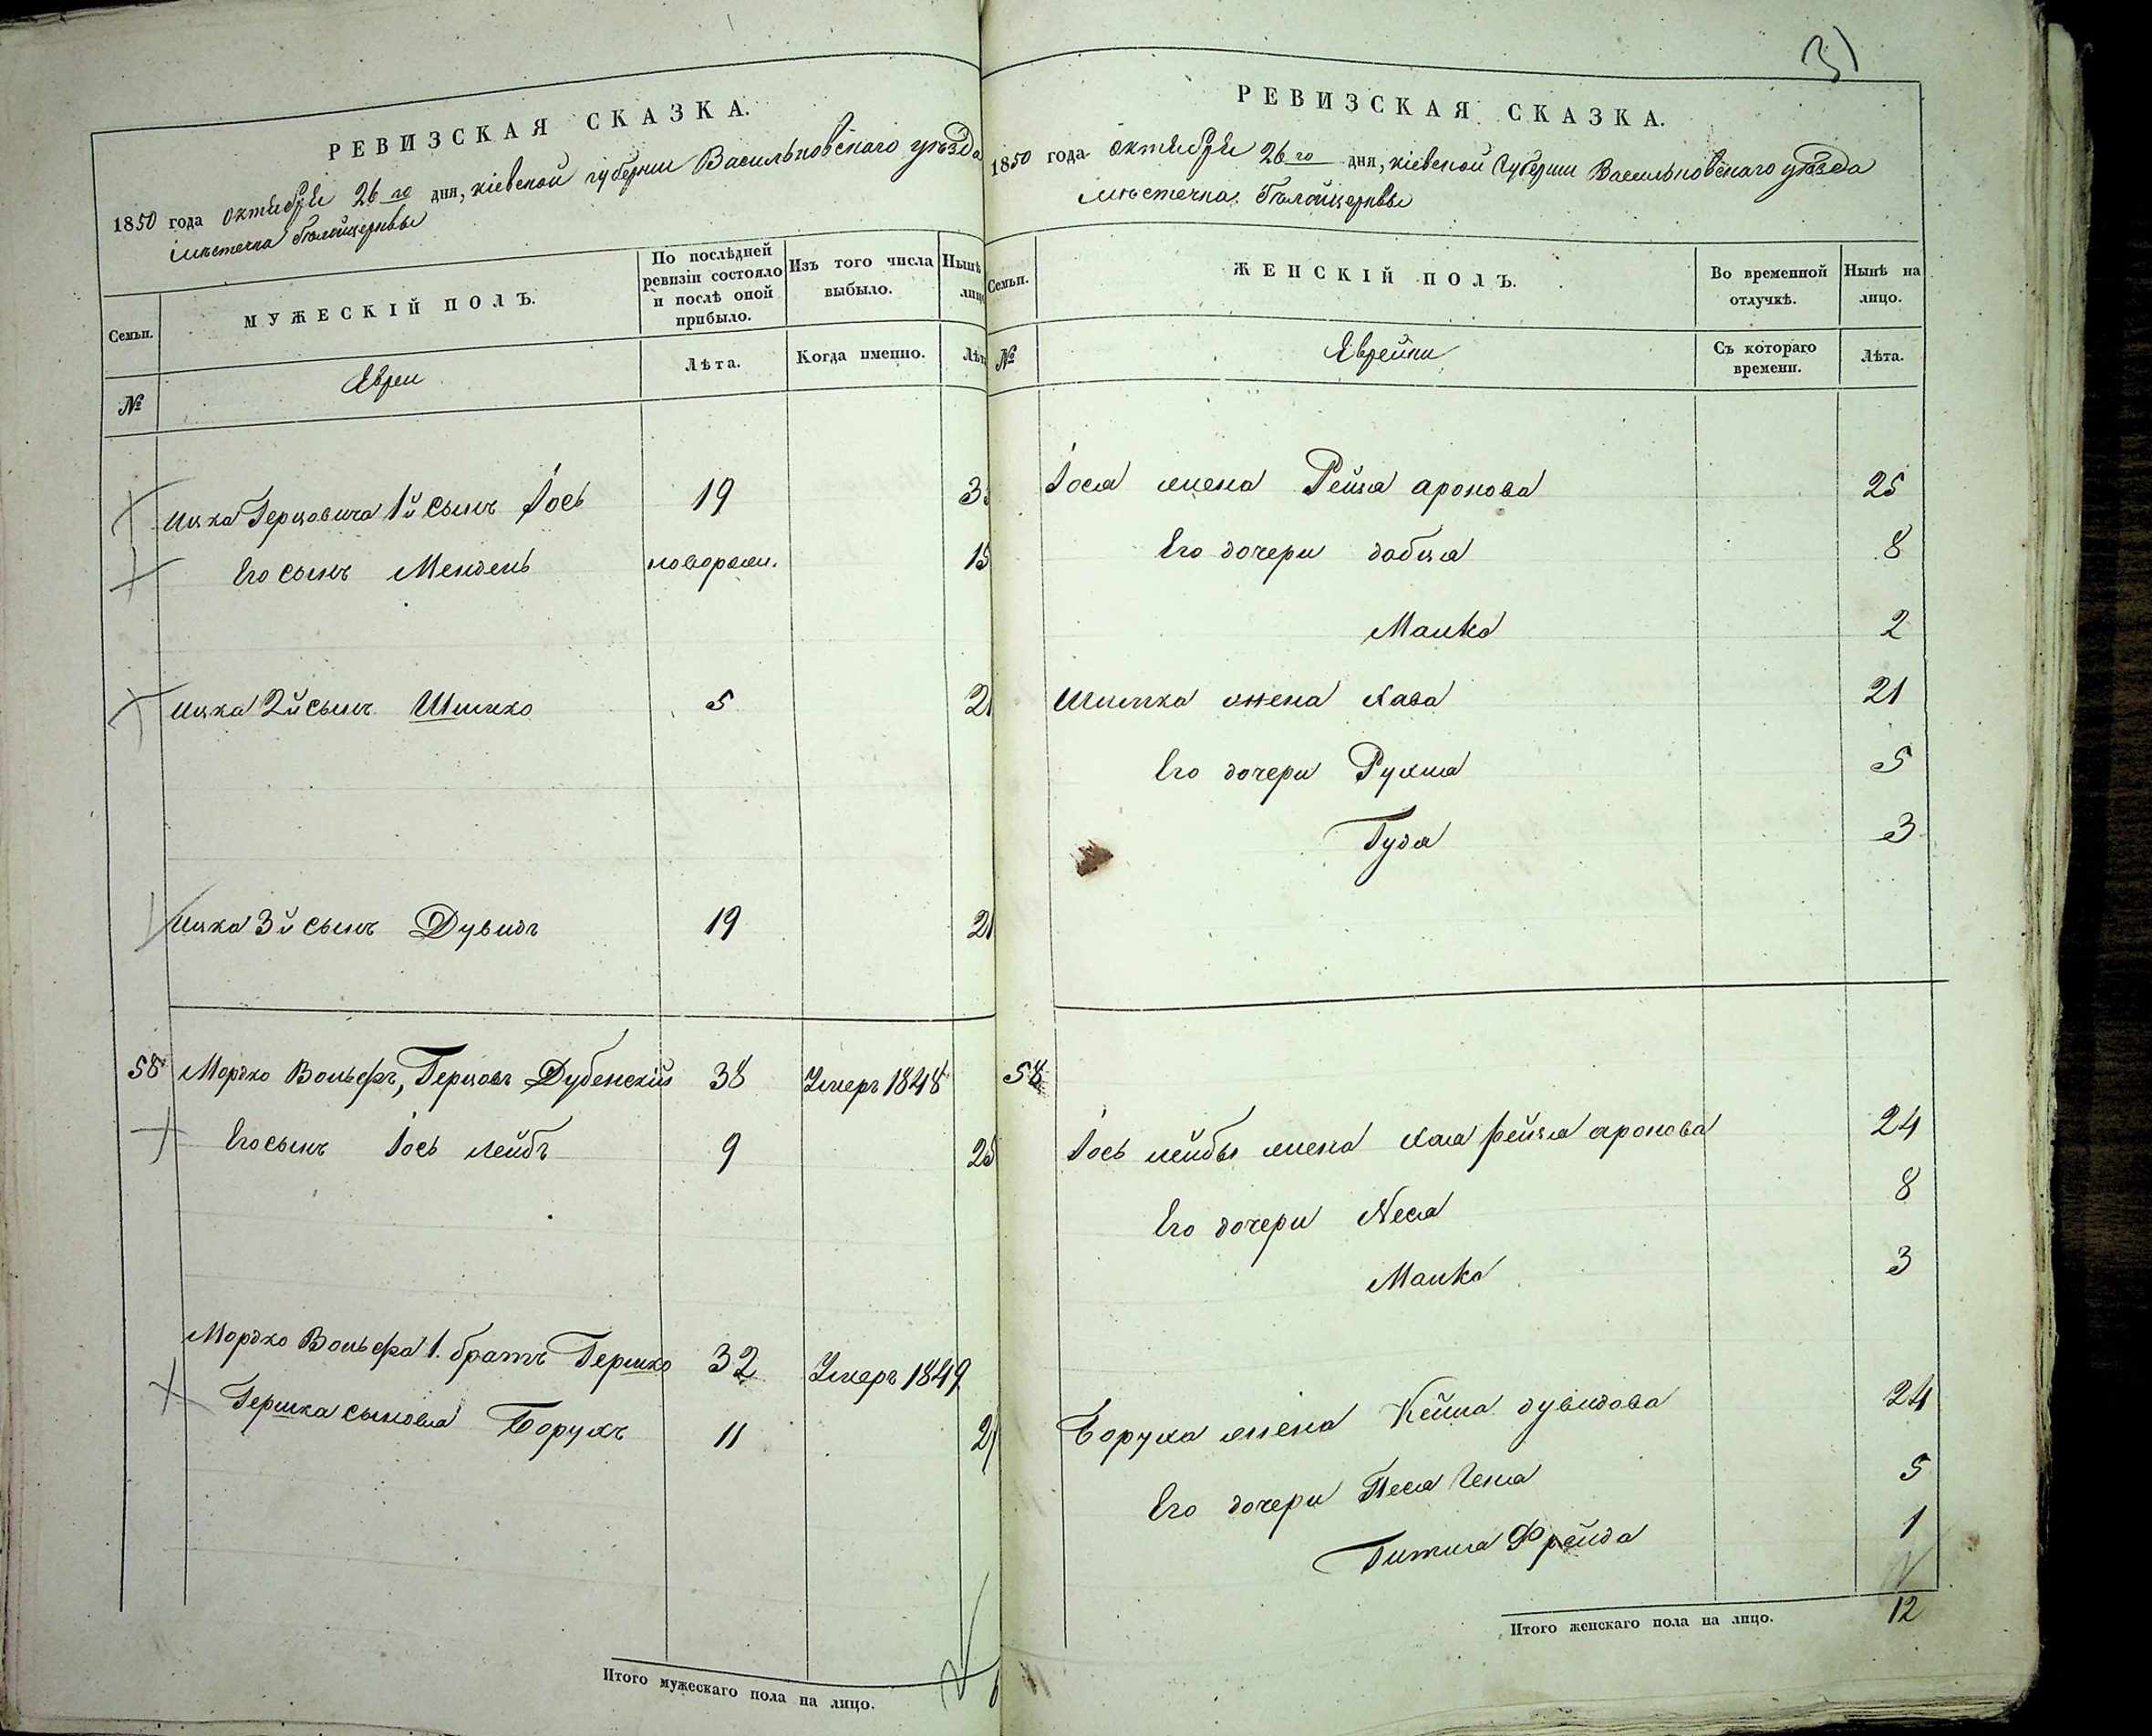 РЕВИЗСКАЯ СКАЗКА.
1850 года октября 26го дня, кіевской губерніи Васильковскаго уѣзда
мѣстечка Бѣлойцеркви
Семьи.
МУЖЕСКІЙ ПОЛЪ.
По послѣдней ревизіи состояло и послѣ оной прибыло.
Изъ того числа выбыло.
Нынѣ лицо
№
Евреи
Лѣта.
Когда именно.
Лѣта
Ицка Герцовича 1й сынъ Іось 19 3
Его сынъ Мендель новорожд. 15
Ицка 2й сынъ Шимко 5 21
Ицка 3й сынъ Дувидъ 19 21
58 Мордко Вольфъ, Герцовъ Дубенскій 38 Умеръ 1848
Его сынъ Іось лейбъ 9 25
Мордко Вольфа 1. братъ Гершко 32 Умеръ 1849
Гершка сыновья Борухъ 11 2
Итого мужескаго пола на лицо. 6
31
РЕВИЗСКАЯ СКАЗКА.
1850 года октября 26го дня, кіевской Губерніи Васильковскаго уѣзда
мѣстечка Бѣлойцеркви
Семьи.
ЖЕНСКІЙ ПОЛЪ.
Во временной отлучкѣ.
Нынѣ на лицо.
№
Еврейки
Съ котораго времени.
Лѣта.
Іося жена Рейзя аронова 25
Его дочери добця 8
Малка 2
Шимка жена Хава 21
Его дочери Рухля 5
Гудя 3
58
Іось лейбы жена Хая рейзя аронова 24
Его дочери Неся 8
Малка 3
Боруха жена Кейла дувидова 24
Его дочери Песя Геня 5
Гитля Фрейда 1
Итого женскаго пола на лицо. 12